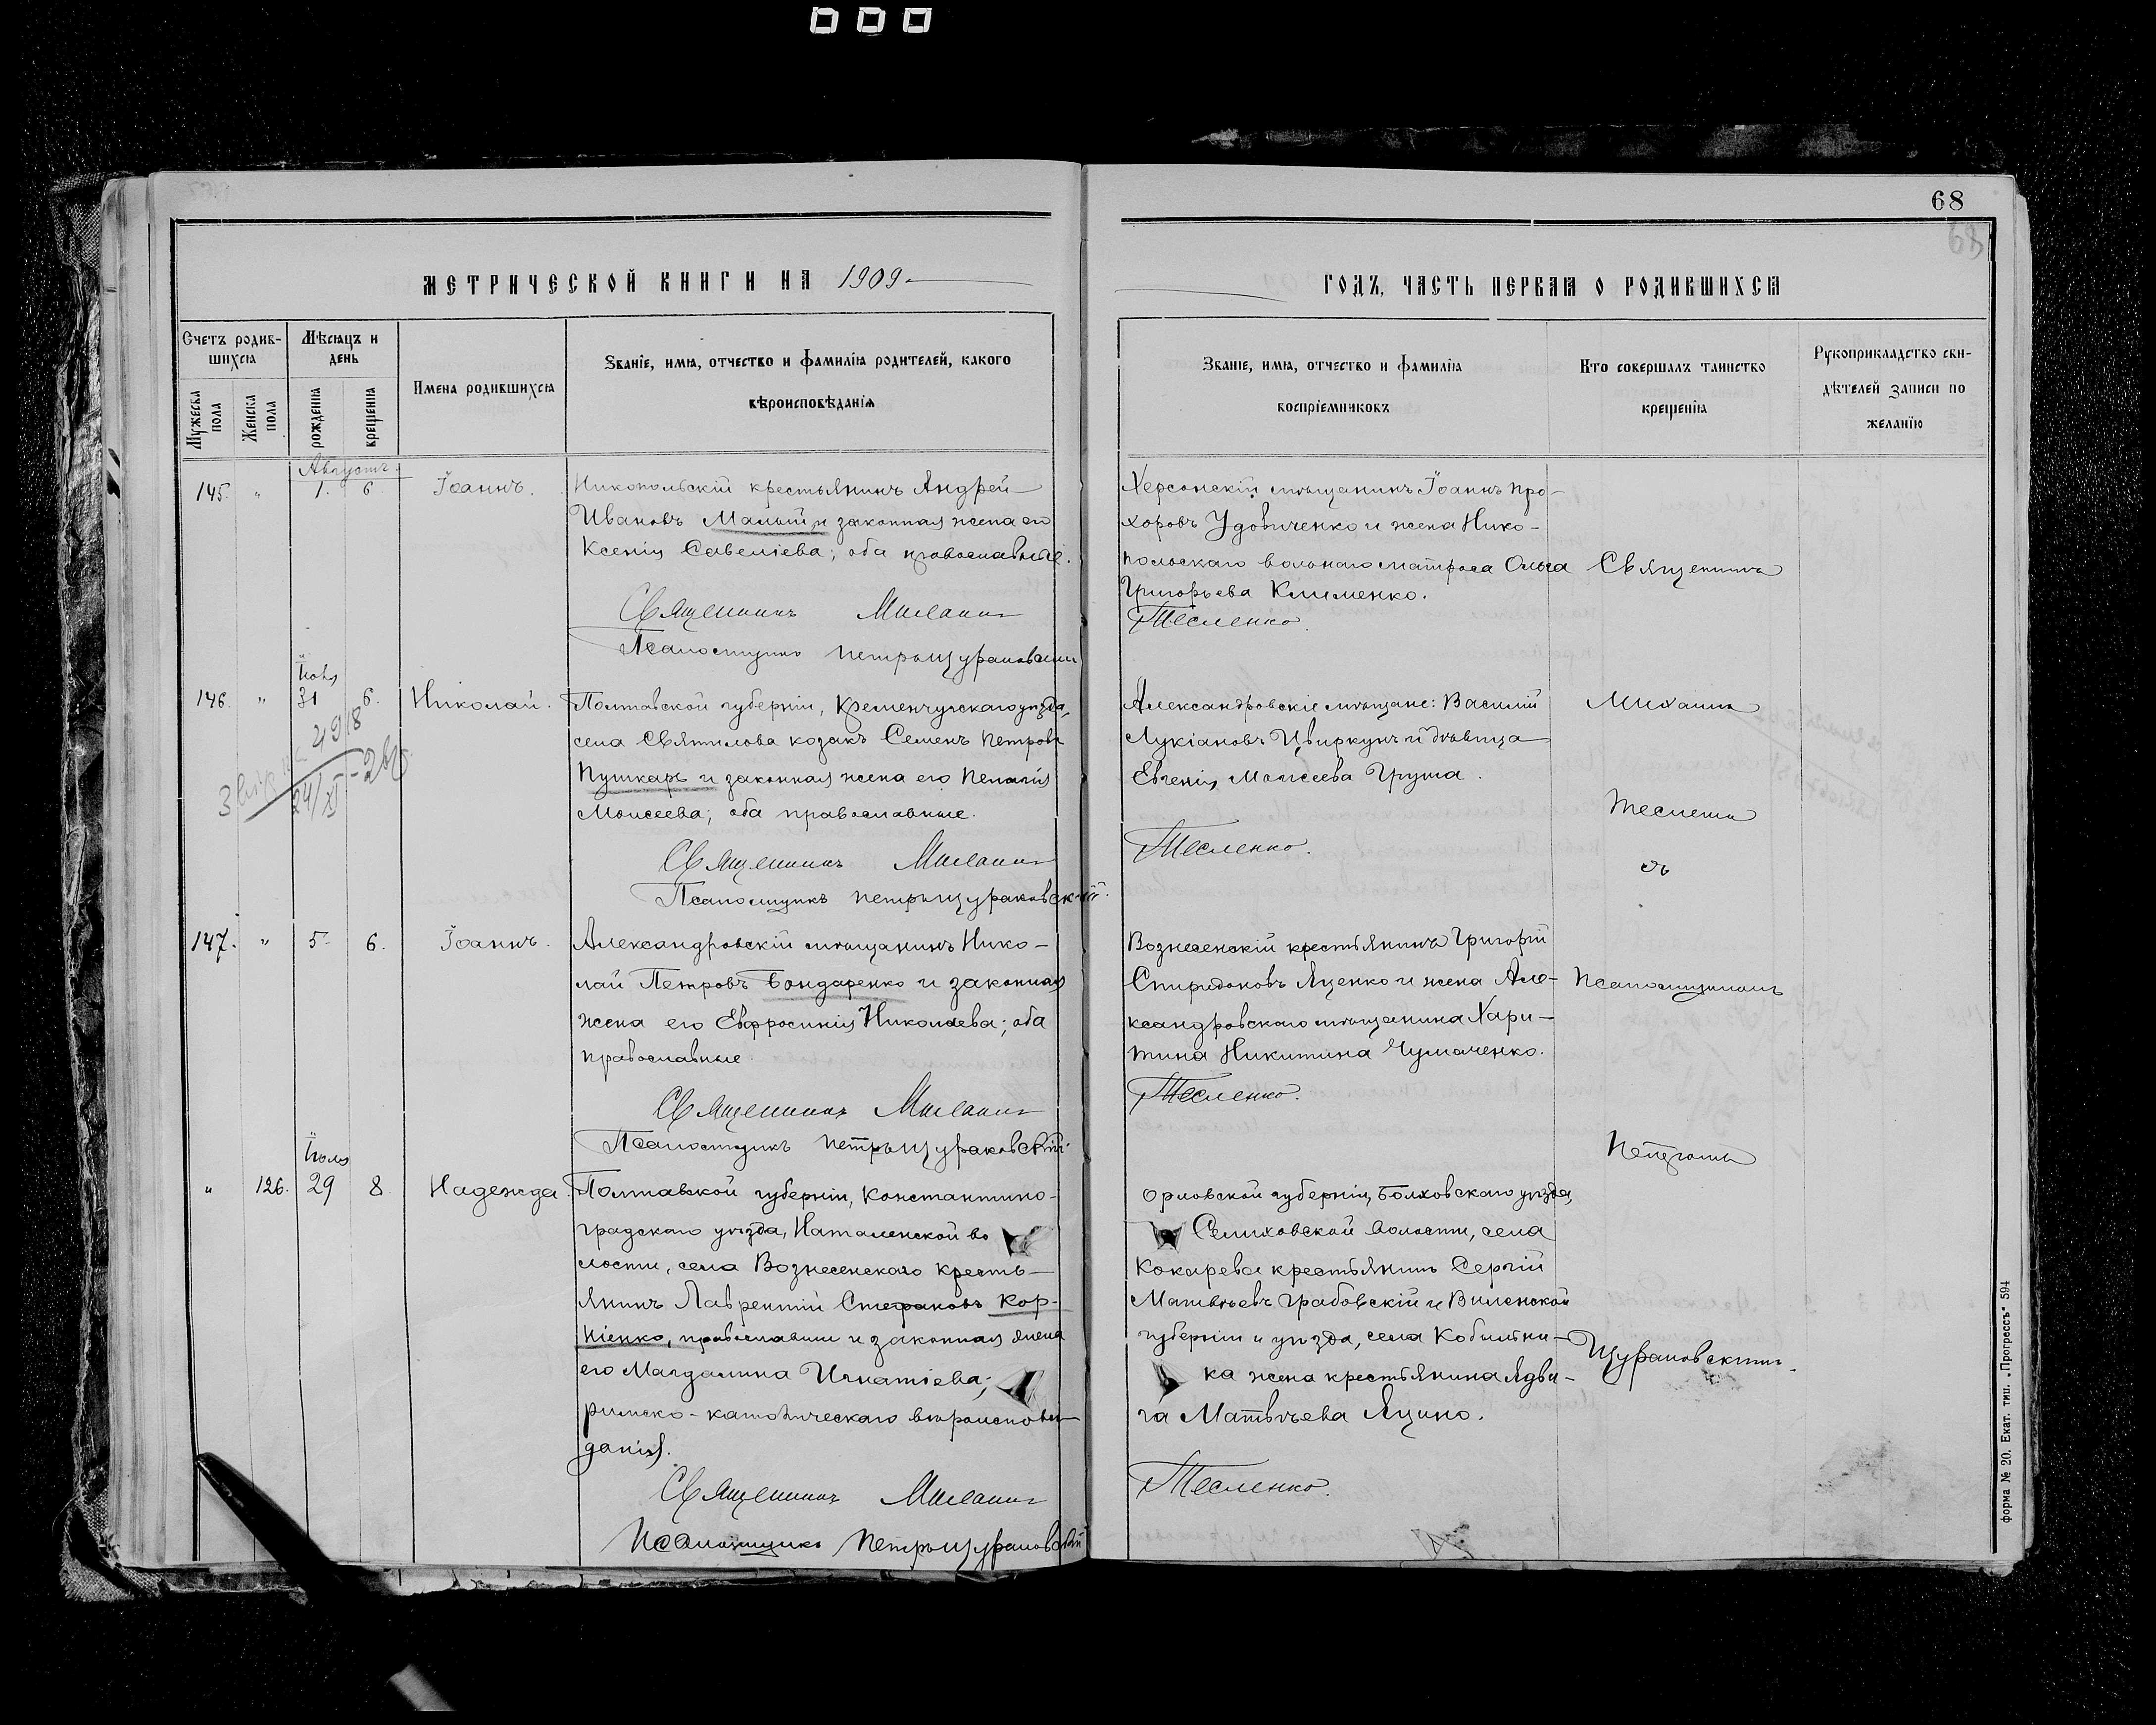 68
68
МЕТРИЧЕСКОЙ КНИГИ НА 1909
ГОДЪ, ЧАСТЬ ПЕРВАЯ О РОДИВШИХСЯ
Счетъ родив-
шихся
Мужеска
пола
Женска
пола
Мѣсяцъ и
день
рожденія
крещенія
Имена родившихся
Званіе, имя, отчество и фамилія родителей, какого
вѣроисповѣданія
Званіе, имя, отчество и фамилія
воспріемниковъ
Кто совершалъ таинство
крещенія
Рукоприкладство сви-
дѣтелей записи по
желанію
Августъ
145. " 1. 6 Іоаннъ.
Никопольскій крестьянинъ Андрей
Ивановъ Малый и законная жена его
Ксенія Савеліева; оба православные.
Священникъ
Псаломщикъ Петръ Щураковскій
Херсонскій мѣщанинъ Іоаннъ Про-
хоровъ Удовиченко и жена Нико-
польскаго вольнаго матроса Ольга
Григорьева Клименко.
Тесленко.
Іюля
146. " 31 6. Николай.
Полтавской губерніи, Кременчугскаго уѣзда,
села Святилова козакъ Семенъ Петровъ
Пушкарь и законная жена его Пелагія
Моисеева; оба православные.
Священникъ
Псаломщикъ Петръ Щураковскій.
49/8
24/XI
Александровскіе мѣщане: Василій
Лукіановъ Цвиркунъ и дѣвица
Евгенія Моисеева Груша.
Тесленко.
147. " 5. 6. Іоаннъ.
Александровскій мѣщанинъ Нико-
лай Петровъ Бондаренко и законная
жена его Евфросинія Николаева; оба
православные.
Священникъ
Псаломщикъ Петръ Щураковскій
Вознесенскій крестьянинъ Григорій
Спиридоновъ Яценко и жена Але-
ксандровскаго мѣщанина Хари-
тина Никитина Чумаченко.
Тесленко.
Іюля
" 126. 29 8 Надежда.
Полтавской губерніи, Константино-
градскаго уѣзда, Наталенской во
лости, села Вознесенскаго кресть-
янинъ Лаврентій Стефановъ Кор-
ніенко, православный и законная жена
его Магдалина Игнатіева;
римско-католическаго вѣроисповѣ-
данія.
Священникъ
Псаломщикъ Петръ Щураковскій
Орловской губерніи, Болховскаго уѣзда,
Селиховской волости, села
Кокарева крестьянинъ Сергій
Матвѣевъ Грабовскій и Виленской
губерніи и уѣзда, села Кобыльни-
ка жена крестьянина Ядви-
га Матвѣева Яцино.
Тесленко.
Священникъ
Михаилъ
съ
Псаломщикомъ
Петромъ
Щураковскимъ.
форма № 20. Екат. тип. „Прогрессъ" 594